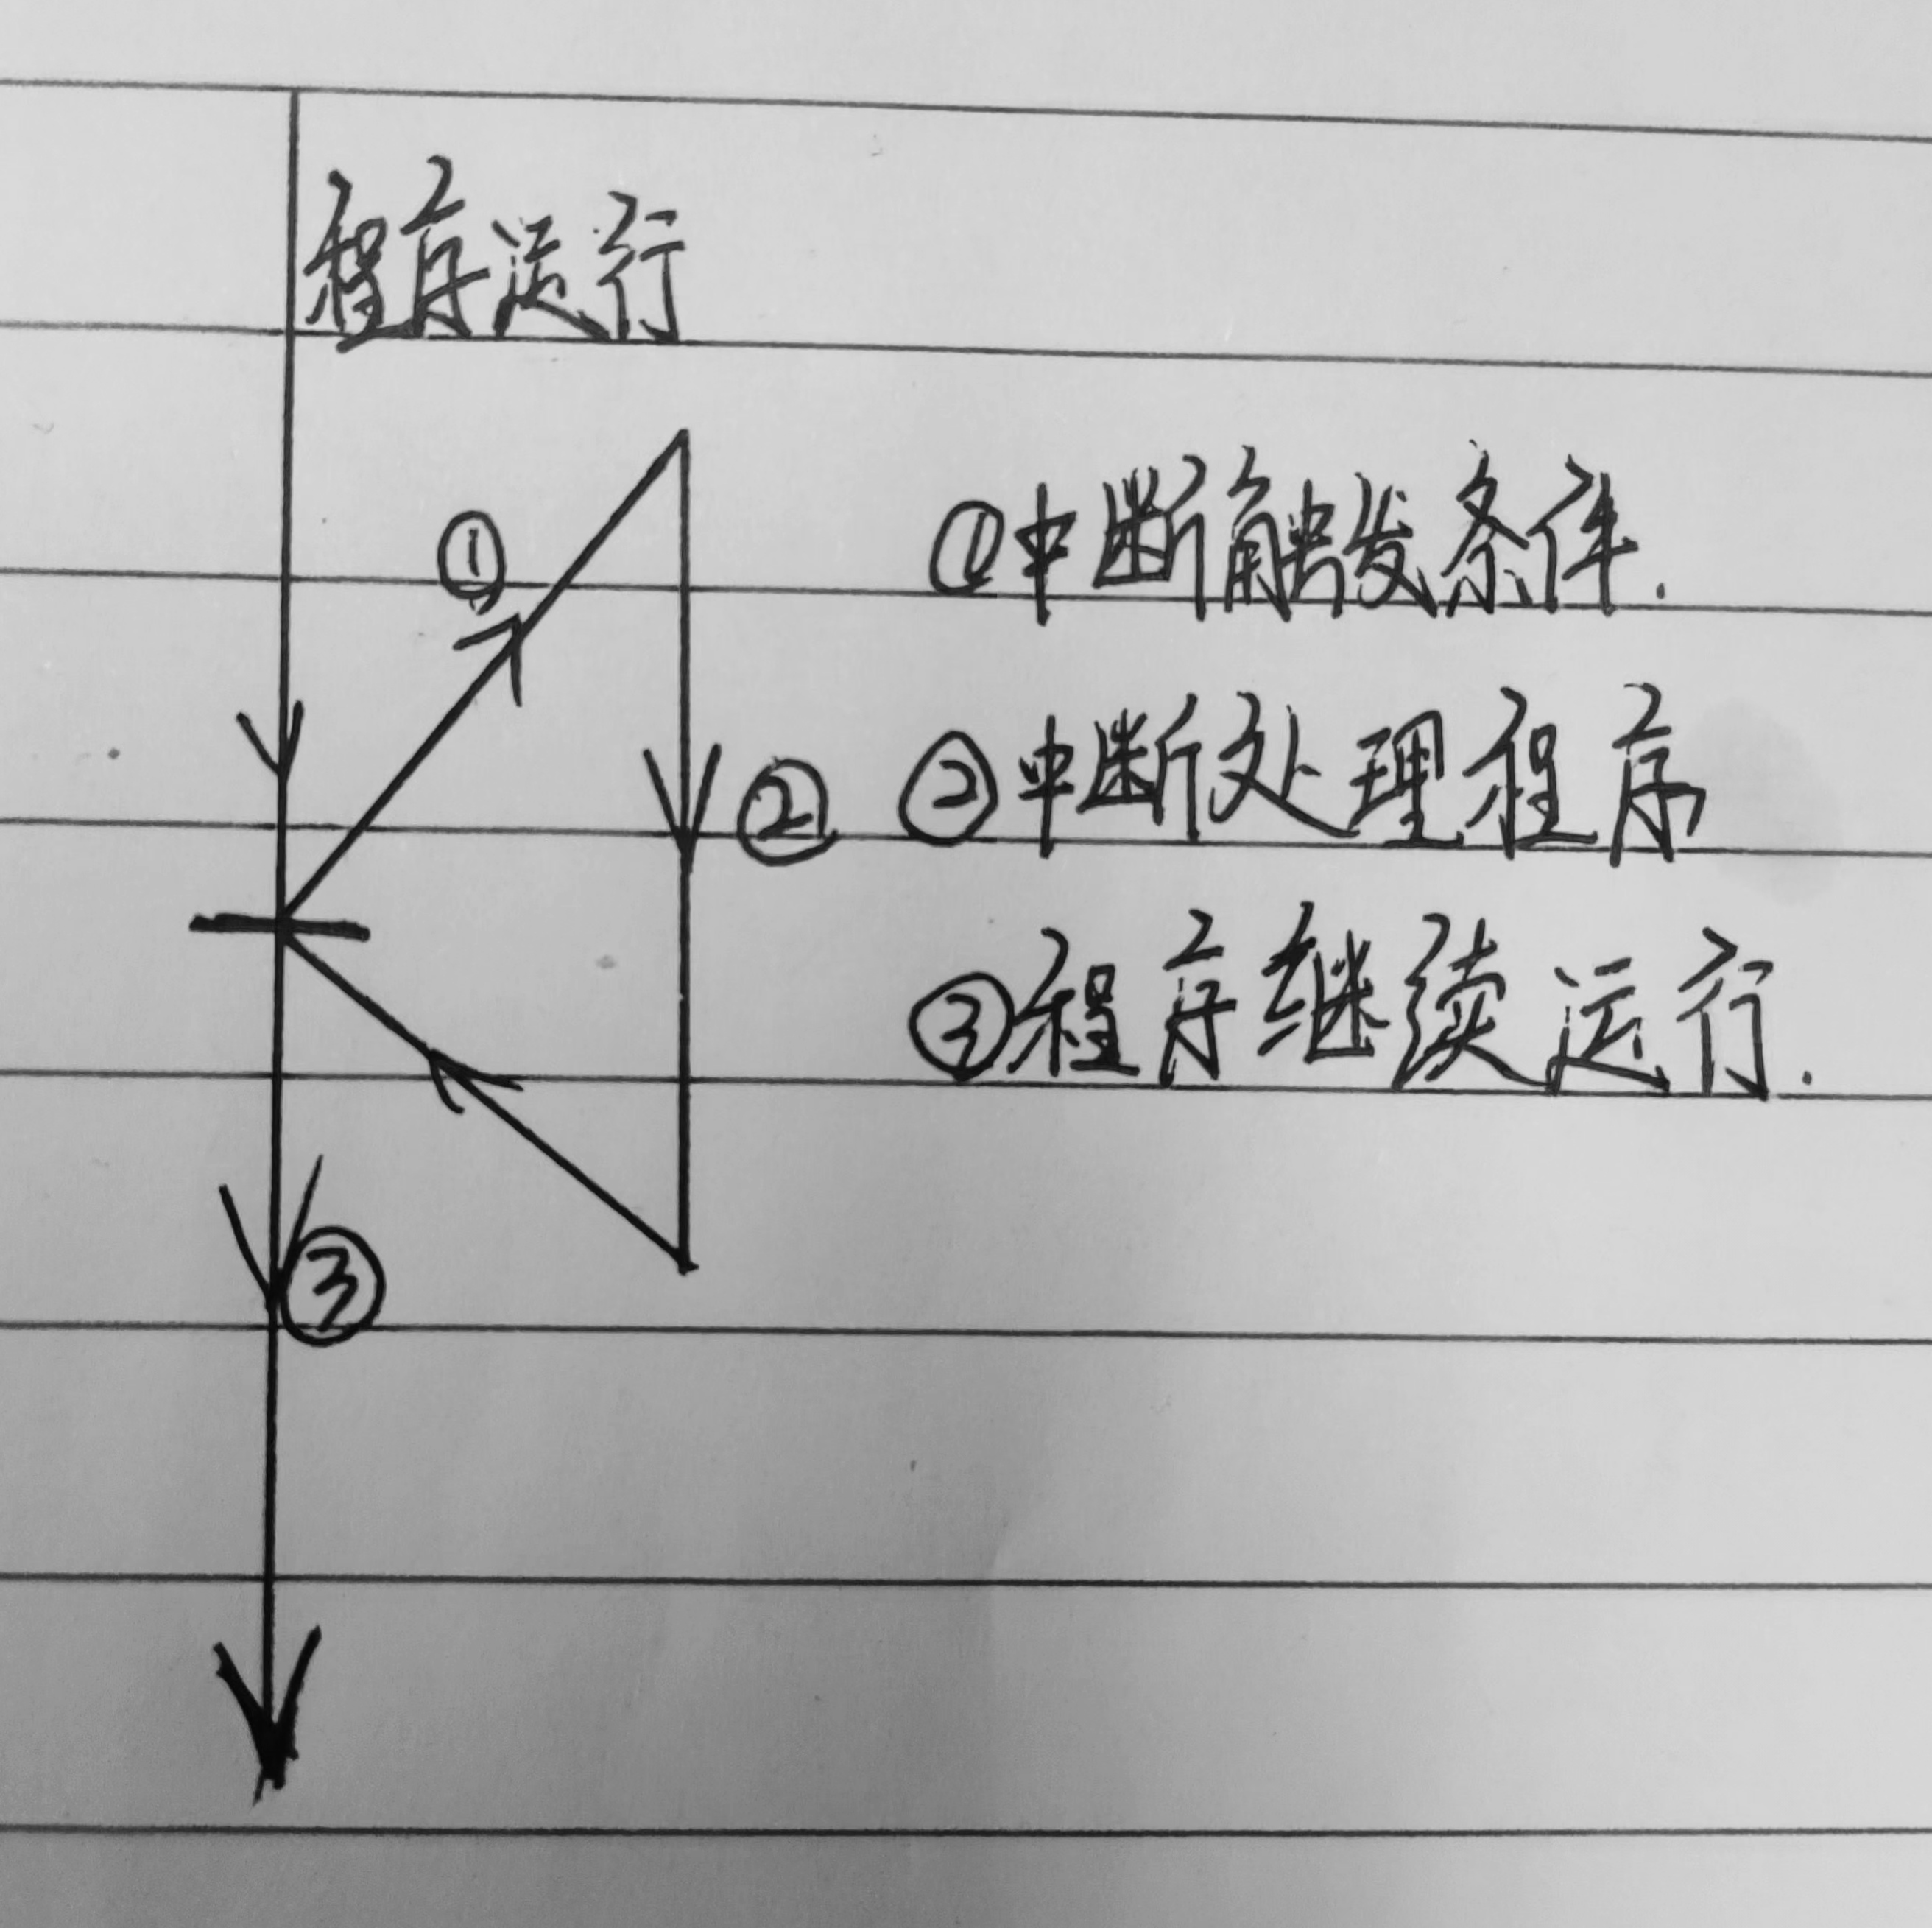 程序运行
①
①中断触发条件.
②
②中断处理程序
③程序继续运行.
③